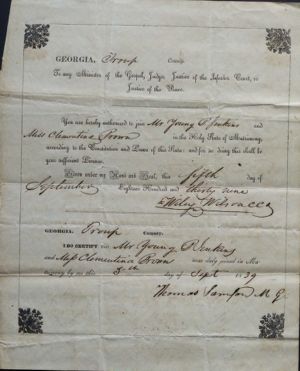 GEORGIA, Troup County.
To any Minister of the Gospel, Judge, Justice of the Inferior Court, or
Justice of the Peace.
You are hereby authorised to join Mr Young P. Jenkins and
Miss Clementina Brown in the Holy State of Matrimony,
according to the Constitution and Laws of this State: and for so doing this shall be
your sufficient License.
Given under my Hand and Seal, this fifth day of
September Eighteen Hundred and thirty nine
Wiley Wilson cco
GEORGIA, Troup County.
I DO CERTIFY that Mr Young P. Jenkins
and Miss Clementina Brown were duly joined in Ma-
trimony by me this 5th day of Sept 1839
Thomas Samford M G